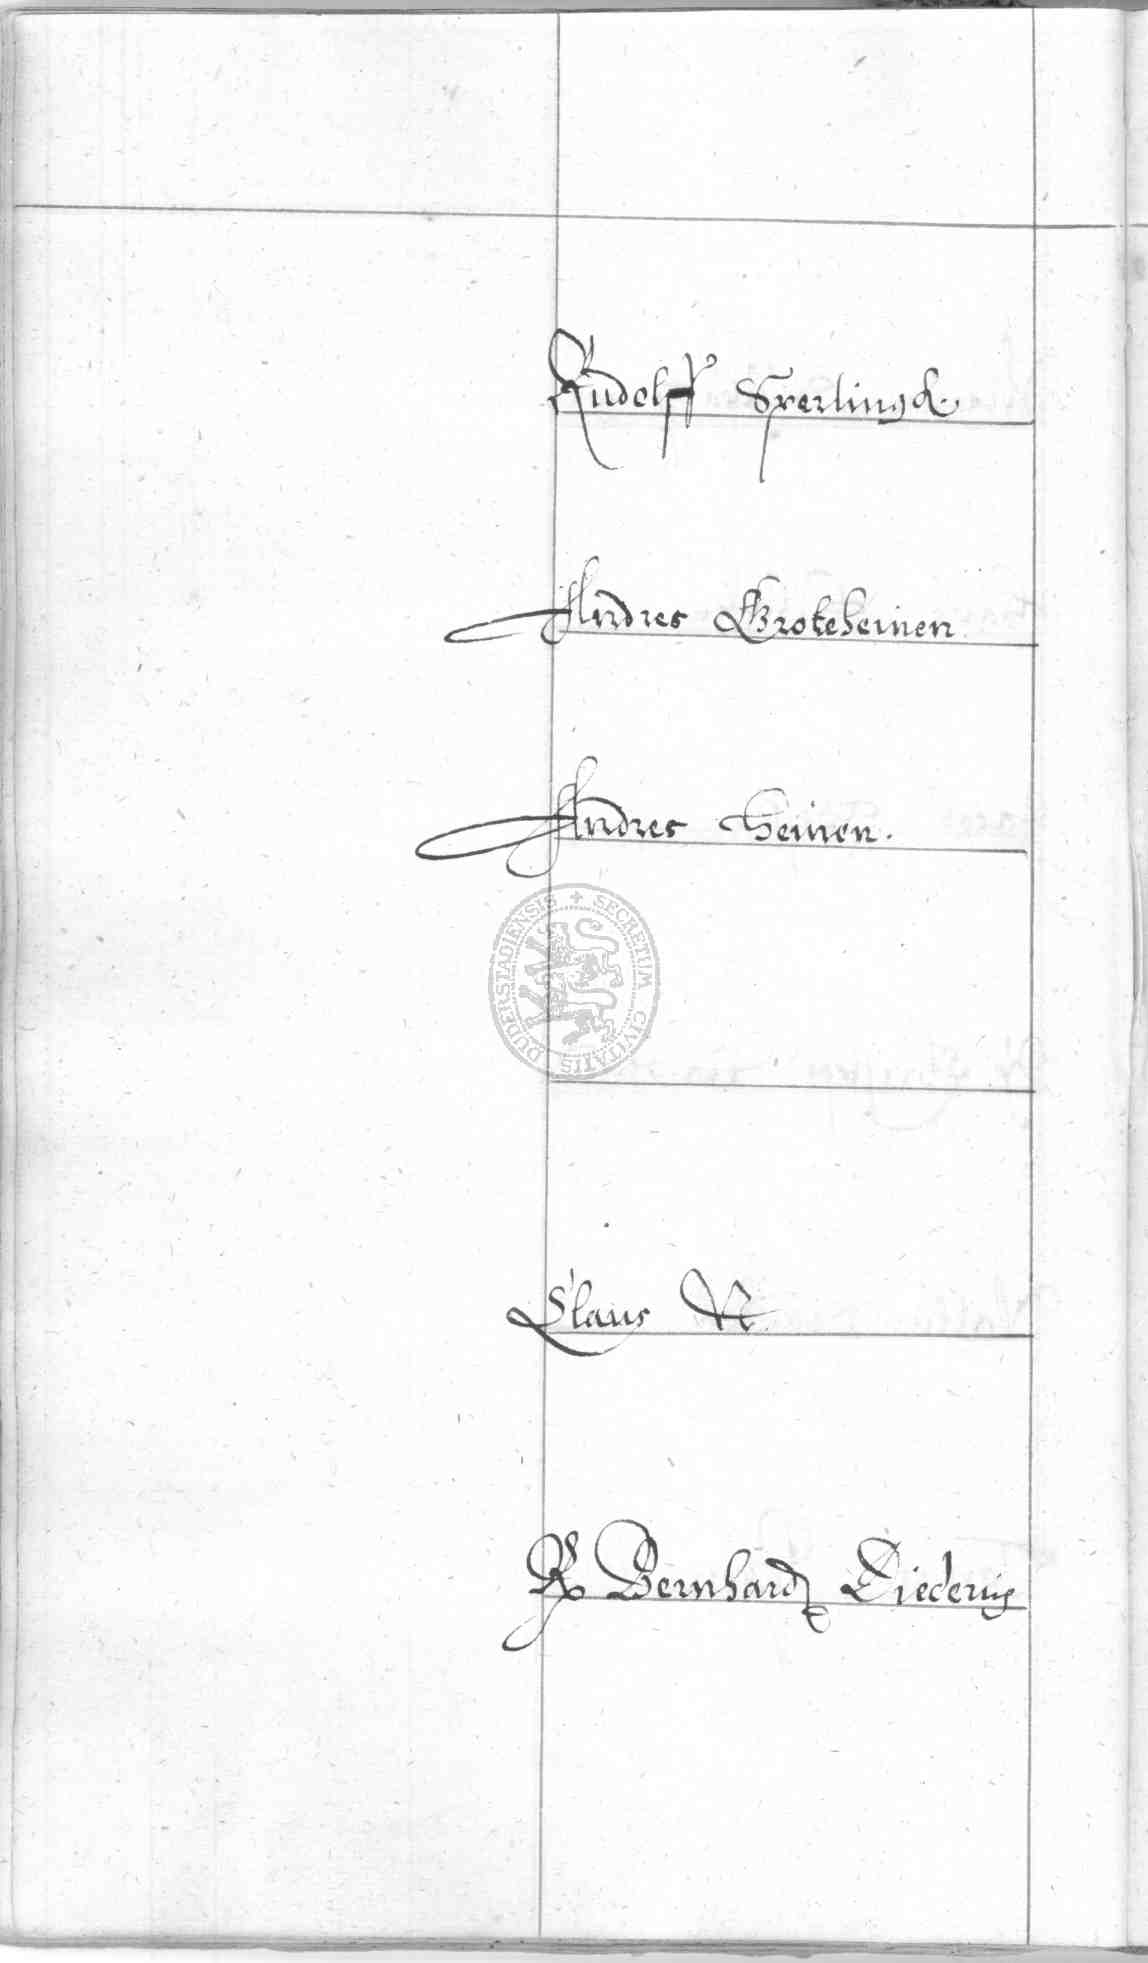 Rudolff Sperlingk.
Andres Groteheinen
Andres Heinen.
SECRETUM CIVITATIS DUDERSTADIENSIS
Claus N.
Bernhard